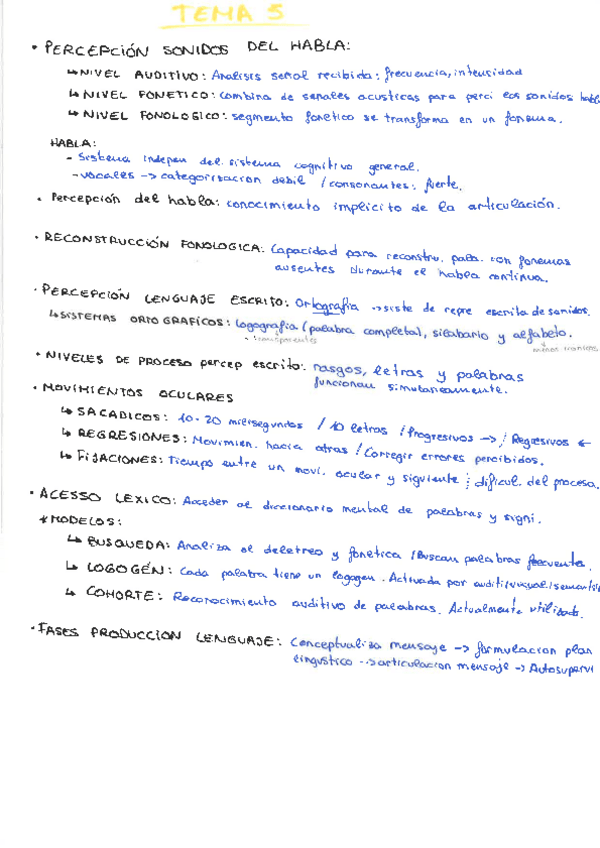 TEMA 5
• PERCEPCIÓN SONIDOS DEL HABLA:
↳ NIVEL AUDITIVO: Analisis señal recibida: frecuencia, intensidad
↳ NIVEL FONETICO: combina de señales acusticas para perci los sonidos habla
↳ NIVEL FONOLOGICO: segmento fonetico se transforma en un fonema.
HABLA:
- Sistema indepen del sistema cognitivo general.
- vocales -> categorizacion debil / consonantes: fuerte.
• Percepción del habla: conocimiento implicito de la articulación.
• RECONSTRUCCIÓN FONOLOGICA: Capacidad para reconstru. pala. con fonemas
ausentes durante el habla continua.
• PERCEPCIÓN LENGUAJE ESCRITO: Ortografia -> siste de repre escrita de sonidos.
↳ SISTEMAS ORTOGRAFICOS: logografia (palabra completa), silabario y alfabeto.
+ transparentes
menos transpa
• NIVELES DE PROCESO percep escrito: rasgos, letras y palabras
funcionan simultaneamente.
• MOVIMIENTOS OCULARES
↳ SACADICOS: 10-20 milisegundos / 10 letras / Progresivos -> / Regresivos <-
↳ REGRESIONES: Movimien. hacia atras / Corregir errores percibidos.
↳ FIJACIONES: Tiempo entre un movi. ocular y siguiente : dificul. del procesa.
• ACESSO LEXICO: Acceder al diccionario mental de palabras y signi.
* MODELOS:
↳ BUSQUEDA: Analiza el deletreo y fonetica / Buscan palabras frecuente.
↳ LOGOGÉN: Cada palabra tiene un logogen. Activada por auditi/visual/semantic
↳ COHORTE: Reconocimiento auditivo de palabras. Actualment utilizado.
• FASES PRODUCCION LENGUAJE: Conceptualiza mensaje -> formulacion plan
linguistico -> articulacion mensaje -> Autosupervi